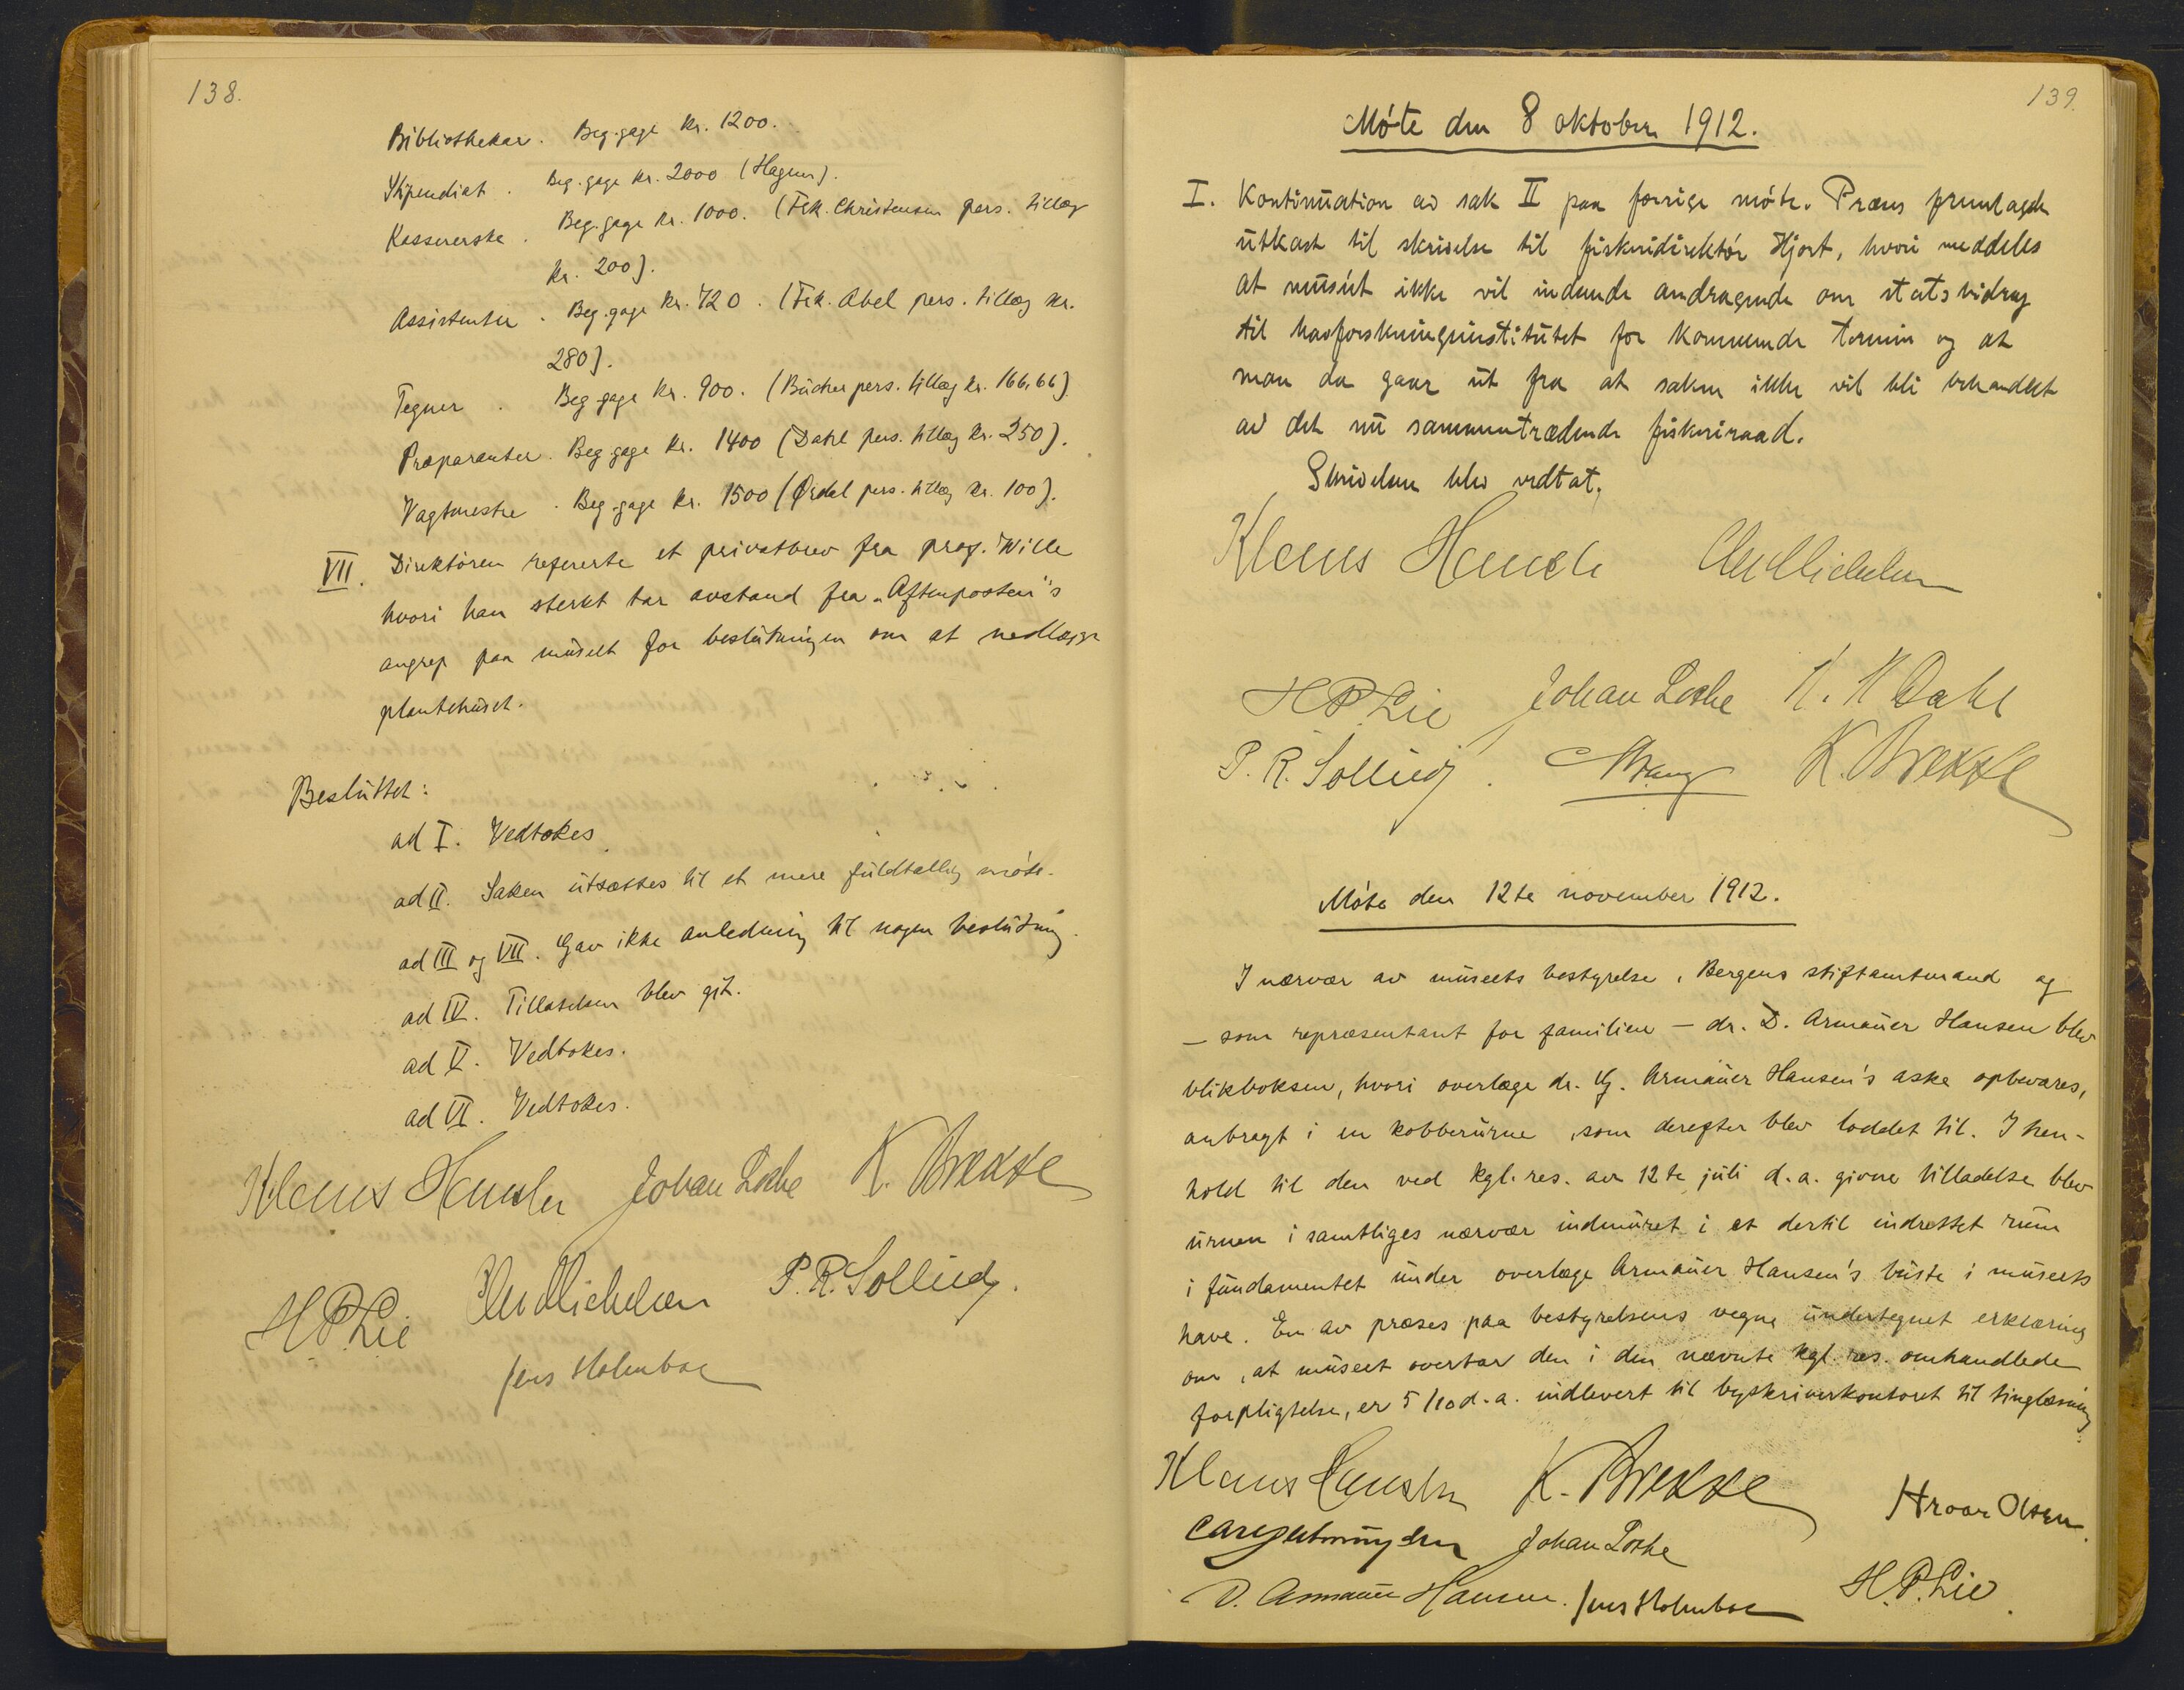 138.
Bibliothekar. Beg. gage kr. 1200.
Stipendiat. Beg. gage kr. 2000 (Hagem).
Kassererske. Beg. gage kr. 1000. (Frk. Christensen pers. tillæg
kr. 200).
Assistenter. Beg. gage kr. 720. (Frk. Abel pers. tillæg kr.
280).
Tegner. Beg. gage kr. 900. (Bücher pers. tillæg kr. 166,66)
Præparanter. Beg. gage kr. 1400 (Dahl pers. tillæg kr. 250).
Vagtmestre. Beg. gage kr. 1500 (Ørdal pers. tillæg kr. 100).
VII. Direktøren refererte et privatbrev fra prof. Wille
hvori han sterkt tar avstand fra "Aftenposten"s
angrep paa muséet for beslutningen om at nedlægge
plantehuset.
Besluttet:
ad I. Vedtokes.
ad II. Saken utsættes til et mere fuldtallig møte.
ad III og VII. Gav ikke anledning til nogen beslutning.
ad IV. Tillatelsen blev git.
ad V. Vedtokes.
ad VI. Vedtokes.
Klaus Hanssen Johan Lothe K. Brekke
H.P. Lie Chr Michelsen P. R. Sollied.
Jens Holmboe
139.
Møte den 8 oktober 1912.
I. Kontinuation av sak II paa forrige møte. Præses fremlagde
utkast til skrivelse til fiskeridirektør Hjort, hvori meddeles
at muséet ikke vil indsende andragende om statsbidrag
til havforskningsinstitutet for kommende termin og at
man da gaar ut fra at saken ikke vil bli behandlet
av det nu sammentrædende fiskeriraad.
Skrivelsen blev vedtat.
Klaus Hanssen Chr Michelsen
H P Lie Johan Lothe K. K Dahl
P. R. Sollied. K. Brekke
Møte den 12te november 1912.
I nærvær av muséets bestyrelse, Bergens stiftamtmand og
- som repræsentant for familien - dr. D. Armauer Hansen blev
blikboksen, hvori overlæge dr. G. Armauer Hansen's aske opbevares,
anbragt i en kobberurne, som derefter blev loddet til. I hen-
hold til den ved kgl. res. av 12te juli d.a. givne tilladelse blev
urnen i samtliges nærvær indmuret i et dertil indrettet rum
i fundamentet under overlæge Armauer Hansen's büste i muséets
have. En av præses paa bestyrelsens vegne undertegnet erklæring
om, at muséet overtar den i den nævnte kgl. res. omhandlede
forpligtelse, er 5/10 d.a. indlevert til byskriverkontoret til tinglæsning.
Klaus Hanssen K. Brekke Hroar Olsen.
Johan Lothe
D. Armauer Hansen. Jens Holmboe H.P. Lie.